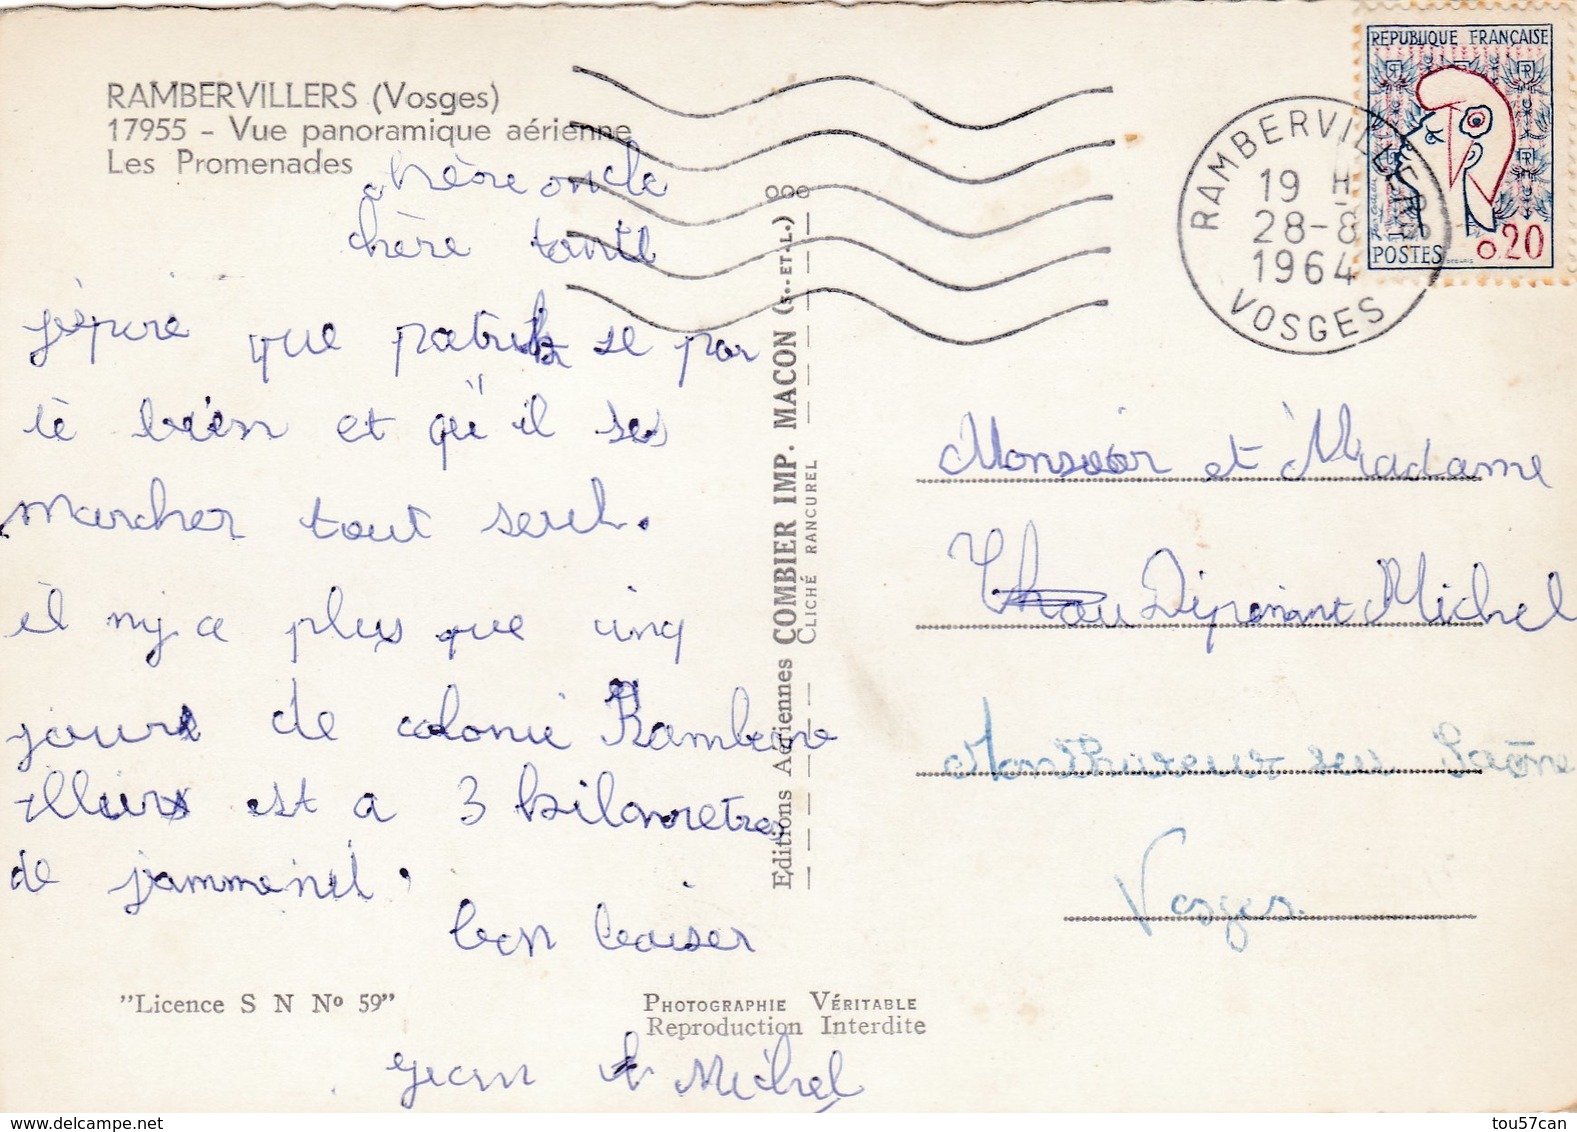 RAMBERVILLERS (Vosges)
17955 - Vue panoramique aérienne
Les Promenades
chère oncle
chère tante
que patrik se por
tè bien et qu'il ses
marcher tout seul.
il ny a plus que cinq
jours de colonie Ramberv
illers est a 3 kilometres
de jammenil.
bon baiser
jean Michel
"Licence S N Nº 59"
PHOTOGRAPHIE VÉRITABLE
Reproduction Interdite
Editions Aériennes COMBIER IMP. MACON (S.-ET-L.)
CLICHÉ RANCUREL
RAMBERVILLERS
19 H
28-8
1964
VOSGES
REPUBLIQUE FRANÇAISE
POSTES 0,20
Monsieur et Madame
Michel
Monthureux sur Saône
Vosges.
tou57can